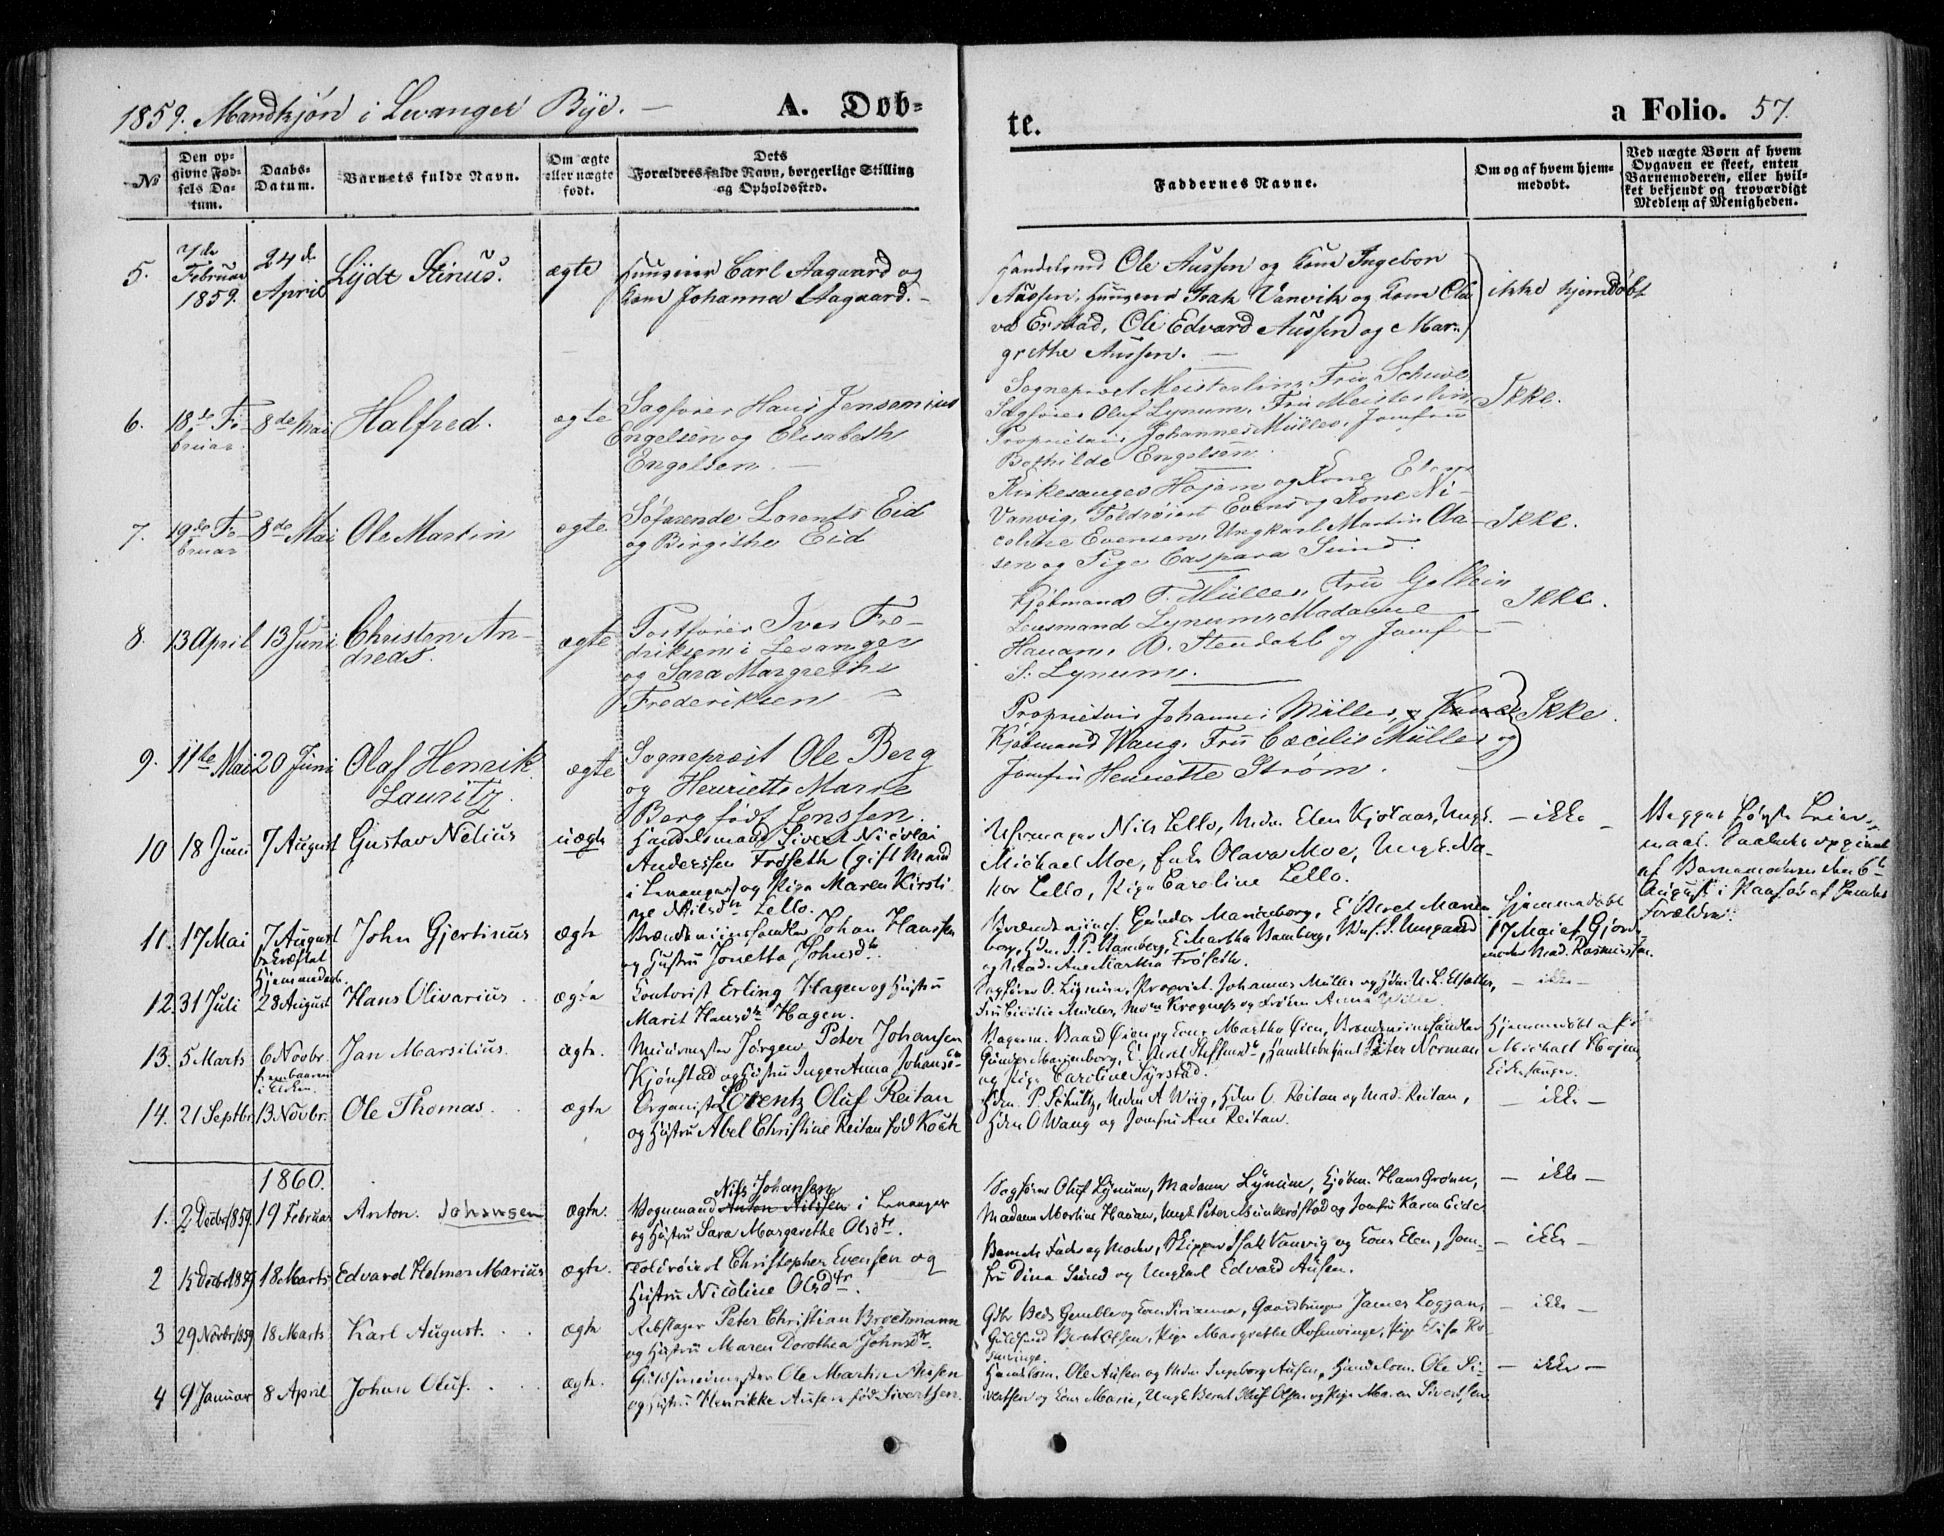 1859. Mandkjøn i Levanger Bye. —
A. Døb-
te.
a Folio. 57.
No
Den op-
givne Fød-
sels Da-
tum.
Daabs-
Datum.
Barnets fulde Navn.
Om ægte
eller uægte
født.
Dets
Forældres fulde Navn, borgerlige Stilling
og Opholdssted.
Faddernes Navne.
Om og af hvem hjem-
medøbt.
Ved uægte Børn af hvem
Opgaven er skeet, enten
Barnemoderen, eller hvil-
ket bekjendt og troværdigt
Medlem af Menigheden.
5.
7de
Februar
1859.
24de
April
Lydt Stinus.
ægte
Carl Aagaard og
Kone Johanna Aagaard. —
Handelsmd Ole Aussen og Kone Ingebor
Aussen, Isak Vanvik og Kone Ola
va Erstad, Ole Edvard Aussen og Mar-
grethe Aussen. —
ikke hjemdøbt
6.
18de Fe-
bruar
8de Mai
Halfred.
ægte
Sagfører Hans Jensenius
Engelsen og Elisabeth
Engelsen. —
Sogneprest Meisterlin, Fru Schive
Sagfører Oluf Lynum, Fru Meisterlin
Proprietair Johannes Müller, Jomfru
Bothilde Engelsen.
Ikke.
7.
19de Fe-
bruar
8de Mai
Ole Martin
ægte
Søfarende Lorents Eid
og Birgithe Eid
Kirkesanger Højem og Kone Elen
Vanvig, Toldrøiert Evens og Kone Ni-
coline Evensen, Ungkarl Martin Aa-
sen og Pige Caspara Sund.
Ikke.
8.
13 April
13 Juni
Christen An-
dreas.
ægte
Postfører Iver Fre-
driksen i Levanger
og Sara Margrethe
Frederiksen —
Kjøbmand F. Müller, Fru Gellein
Lensmand Lynum, Madame
Hanam, O. Stendahl og Jomf
S. Lynum.
Ikke.
9.
11te Mai
20 Juni
Olaf Henrik
Lauritz.
ægte
Sogneprest Ole Berg
og Henriette Marie
Berg født Jenssen.
Proprietair Johannes Müller,
Kjøbmand Wang, Fru Cæcilie Müller og
Jomfru Henriette Strøm.
Ikke.
10
18 Juni
7 August
Gustav Nelius
uægte
Handelsmand Sivert Nicolai
Anderssen Frøseth (gift Mand
i Levanger) og Pige Maren Kirsti-
ne Nilsdtr Lello.
Nils Lello, Mdm Elen Kjølaas, Ungk.
Michael Moe, Enke Olava Moe, Ungk. Na-
Lello, Pige Caroline Lello.
— ikke —
Begges første Leier-
maal. Saaledes opgivet
af Barnemoderen den 6te
August i Paahør af hendes
Forældre.
11.
17 Mai
7 August
bekræftet
Hjemmedaab.
John Gjertinus
ægte
Brændeviinshandler Johan Hanssen
og Hustru Jonetta Johnsdtr.
Gunder Marienborg, E Beret Marien-
borg, J. P. Bamberg, E Martha Bamberg,
og Mad. Ane Martha Frøseth.
Hjemmedøbt
17 Mai af Gjord-
moder Mad. Rasmussen.
12.
31 Juli
28 August
Hans Olivarius.
ægte
Contorist Erling Hagen og Hustru
Marit Hansdtr Hagen.
Sagfører O. Lynum, Propriet. Johannes Müller og
Fru Cicilie Müller, Mdm Krogness og Frøken Anna
— ikke —
13.
5 Marts
6 Novbr
frembaaren
i Kirken.
Jan Marsilius.
ægte.
Muurmester Jørgen Peter Johansen
Kjønstad og Hustru Inger Anna Johans-
Bagerm. Baard Øien og Kone Martha Øien, Brændeviinshandler
Gunder Marienborg, E. Beret Steffensdtr, Handelsbetjent Peter Norman
og Pige Caroline Syrstad.
Hjemmedøbt af
Michael Hojem,
Kirkesanger.
14.
21 Septbr
13 Novbr.
Ole Thomas.
ægte
Organist Lorentz Oluf Reitan
og Hustru Abel Christine Reitan fød Koch
Hdm. P. Schultz, Mdm A Wiig, Hdm O. Reitan og Mad. Reitan,
Hdm O Wang og Jomfru Ane Reitan.
— ikke —
1860.
1.
2 Decbr 1859
19 Februar
Anton. Johansen
ægte.
Nils Johansen
Vognmand Anton Nilssen i Levanger
og Hustru Sara Margrethe Olsdtr.
Sagfører Oluf Lynum, Madame Lynum, Kjøbm. Hans Grønn,
Madame Martine Hanem, Ungk. Peter Munkerøstad og Jomfru Karen Eide
— ikke —
2
15 Decbr 1859
18 Marts
Edvard Helmer Marius
ægte.
Toldrøiert Christopher Evensen og
Hustru Nicoline Olsdtr.
Barnets Fader og Moder, Skipper Isak Vanvig og Kone Elen, Jom-
fru Dina Sund og Ungkarl Edvard Ausen.
— ikke —
3
29 Novbr 1859
18 Marts
Karl August.
ægte
Rebslager Peter Christian Brochmann
og Hustru Maren Dorothea Johnsdtr.
Gamble og Kone, James Loggan,
Bernt Olsen, Pige Margrethe Rosenvinge, Pige Elisa Ro-
senvinge.
— ikke —
4
9 Januar
8 April
Johan Oluf.
ægte.
Guldsmedmester Ole Martin Ausen
og Hustru Henrikke Ausen fød Sivertsen.
Handelsm. Ole Ausen og Mdm Ingeborg Ausen, Handelsm. Ole Si-
vertsen og Kone Marie, Ungk Bernt Oluf Olsen og Pige Maren Sivertsen
— ikke —